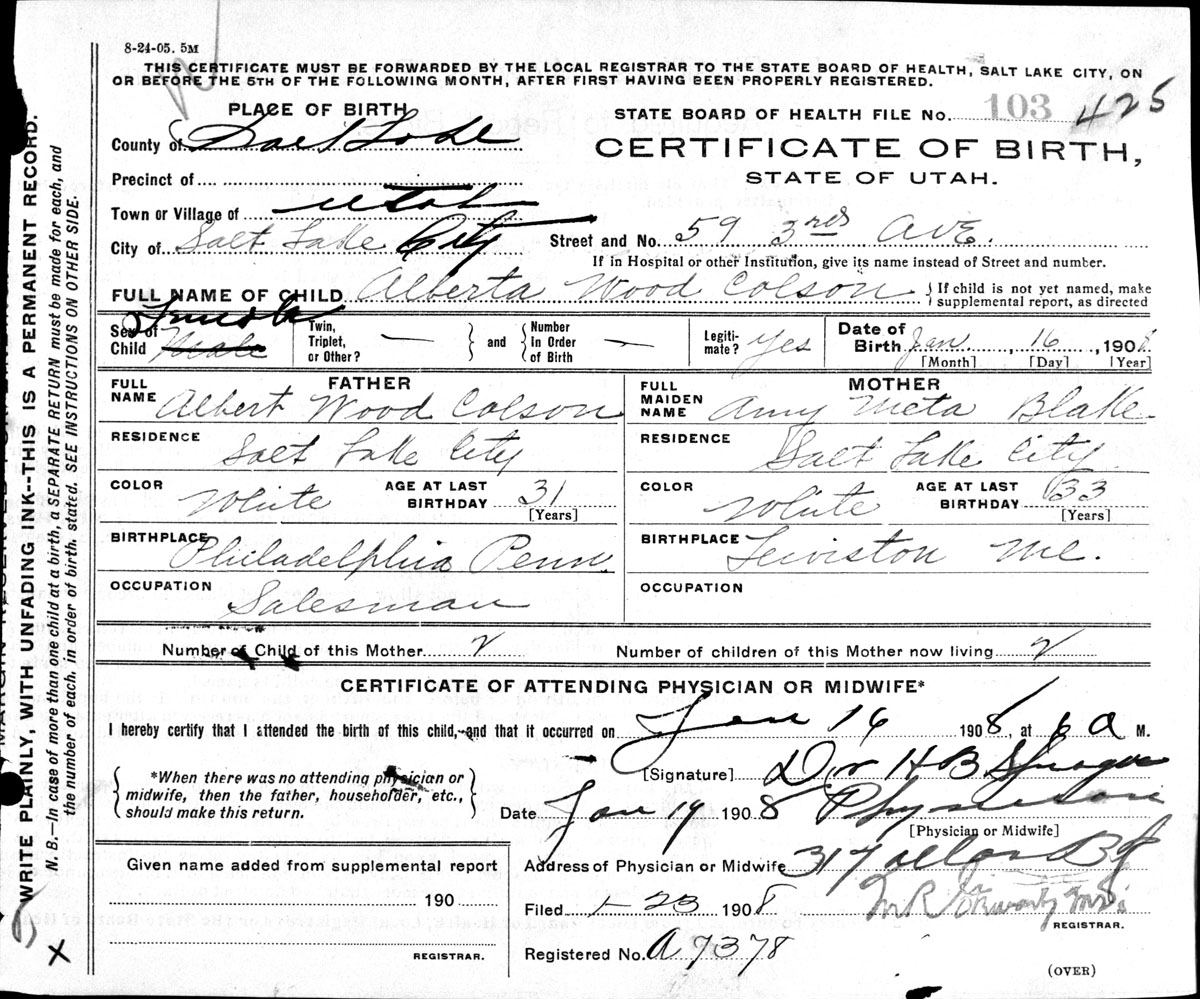 8-24-05. 5M
THIS CERTIFICATE MUST BE FORWARDED BY THE LOCAL REGISTRAR TO THE STATE BOARD OF HEALTH, SALT LAKE CITY, ON
OR BEFORE THE 5TH OF THE FOLLOWING MONTH, AFTER FIRST HAVING BEEN PROPERLY REGISTERED.
PLACE OF BIRTH
STATE BOARD OF HEALTH FILE No. 103 425
County of Salt Lake
CERTIFICATE OF BIRTH,
STATE OF UTAH.
Precinct of
Town or Village of Utah
City of Salt Lake City
Street and No. 59 3rd AVE.
If in Hospital or other Institution, give its name instead of Street and number.
FULL NAME OF CHILD Alberta Wood Colson {If child is not yet named, make
supplemental report, as directed
Female
Sex of Child Male
Twin, Triplet, or Other? — } and { Number in Order of Birth —
Legitimate? Yes
Date of Birth Jan. 16, 1908
[Month] [Day] [Year]
FATHER
FULL NAME Albert Wood Colson
RESIDENCE Salt Lake City
COLOR White AGE AT LAST BIRTHDAY 31
[Years]
BIRTHPLACE Philadelphia Penn.
OCCUPATION Salesman
MOTHER
FULL MAIDEN NAME Amy Meta Blake
RESIDENCE Salt Lake City
COLOR White AGE AT LAST BIRTHDAY 33
[Years]
BIRTHPLACE Lewiston Me.
OCCUPATION
Number of Child of this Mother 2 Number of children of this Mother now living 2
CERTIFICATE OF ATTENDING PHYSICIAN OR MIDWIFE*
I hereby certify that I attended the birth of this child, and that it occurred on Jan 16 1908, at 6 a M.
*When there was no attending physician or
midwife, then the father, householder, etc.,
should make this return.
[Signature] Dr H B Sprague
Date Jan 19 1908 Physician
[Physician or Midwife]
Address of Physician or Midwife 317
Given name added from supplemental report
190
REGISTRAR.
Filed 1-23 1908
REGISTRAR.
Registered No. A 7378
(OVER)
WRITE PLAINLY, WITH UNFADING INK--THIS IS A PERMANENT RECORD.
N. B.—In case of more than one child at a birth, a SEPARATE RETURN must be made for each, and
the number of each, in order of birth, stated. SEE INSTRUCTIONS ON OTHER SIDE.
X